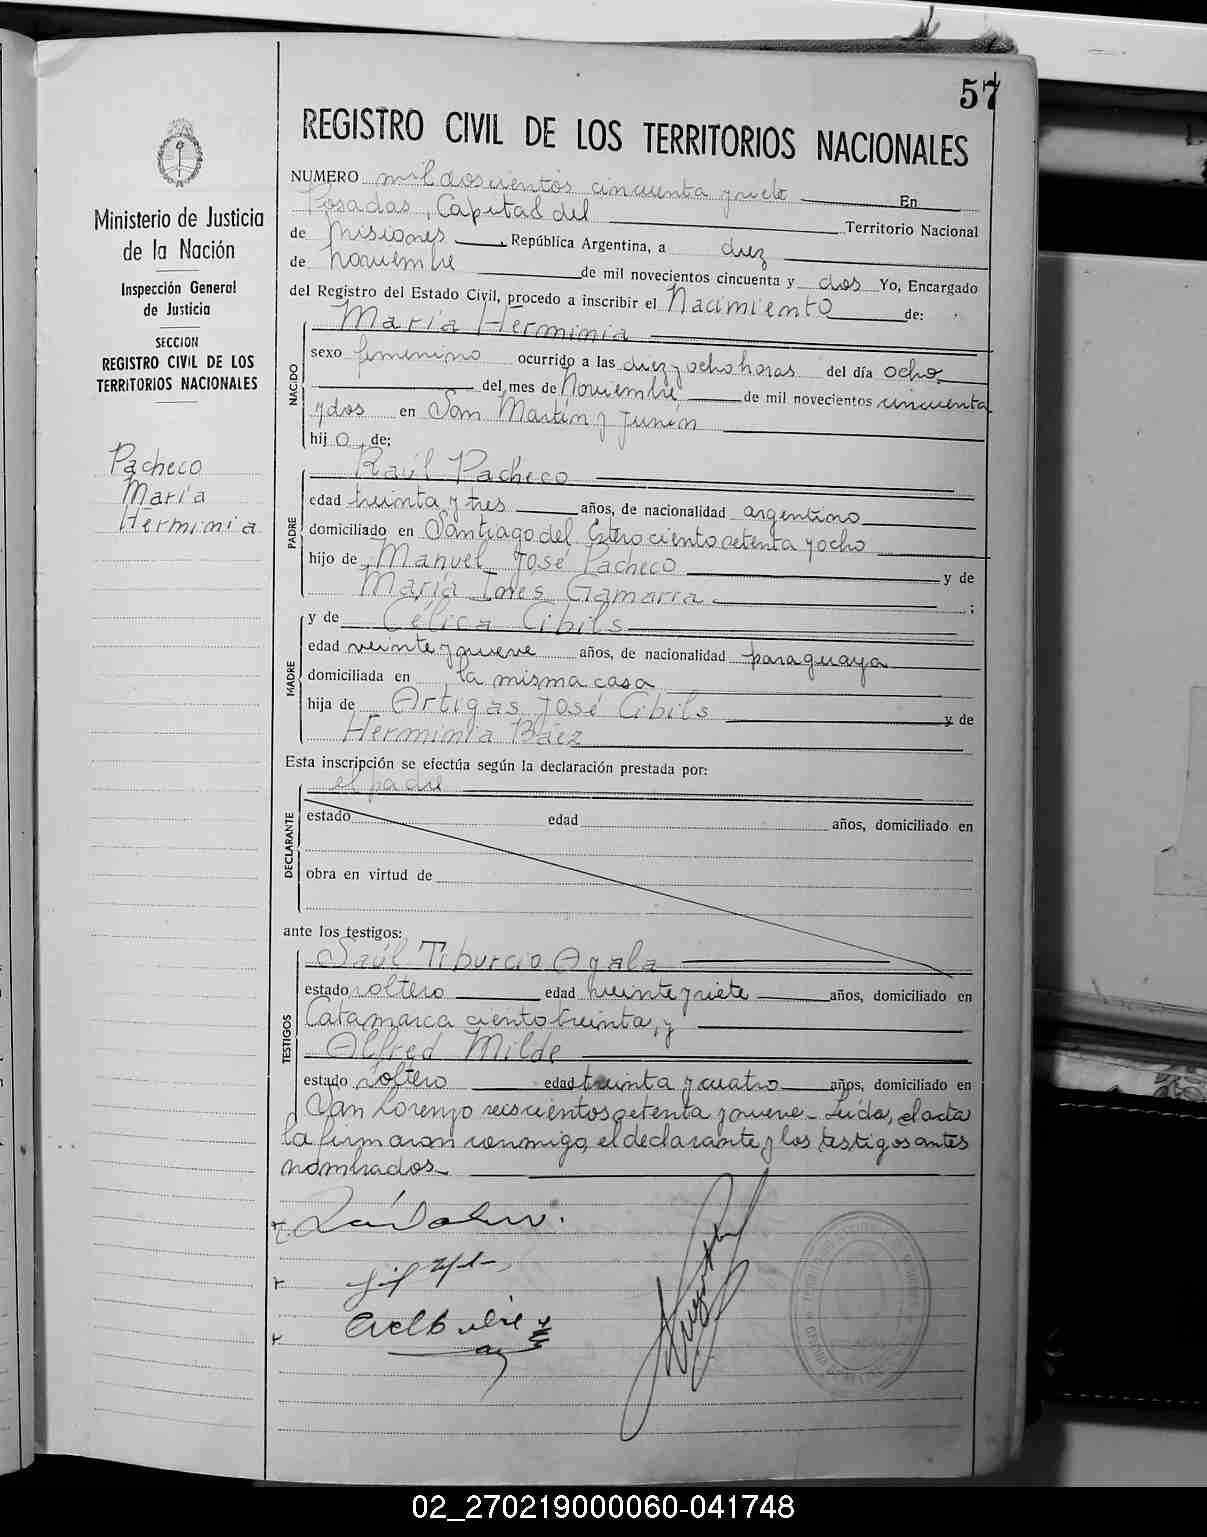 57
REGISTRO CIVIL DE LOS TERRITORIOS NACIONALES
Ministerio de Justicia
de la Nación
Inspección General
de Justicia
SECCION
REGISTRO CIVIL DE LOS
TERRITORIOS NACIONALES
Pacheco
María
Herminia
NUMERO mil doscientos cincuenta y siete En
Posadas, Capital del Territorio Nacional
de Misiones, República Argentina, a diez
de noviembre de mil novecientos cincuenta y dos Yo, Encargado
del Registro del Estado Civil, procedo a inscribir el Nacimiento de:
NACIDO
María Herminia
sexo femenino ocurrido a las diez y ocho horas del día ocho
del mes de Noviembre de mil novecientos cincuenta
y dos en San Martín y Junín
hij a de;
PADRE
Raúl Pacheco
edad treinta y tres años, de nacionalidad argentino
domiciliado en Santiago del Estero ciento setenta y ocho
hijo de Manuel José Pacheco y de
María Inés Gamarra ;
MADRE
y de Célica Cibils
edad veinte y nueve años, de nacionalidad paraguaya
domiciliada en la misma casa
hija de Artigas José Cibils y de
Herminia Báez
Esta inscripción se efectúa según la declaración prestada por:
DECLARANTE
el padre
estado edad años, domiciliado en
obra en virtud de
ante los testigos:
TESTIGOS
Saúl Tiburcio Ayala
estado soltero edad veinte y siete años, domiciliado en
Catamarca ciento treinta, y
Alfred Milde
estado soltero edad treinta y cuatro años, domiciliado en
San Lorenzo seiscientos setenta y nueve. Leída, el acta
la firmaron conmigo, el declarante y los testigos antes
nombrados
02_270219000060-041748